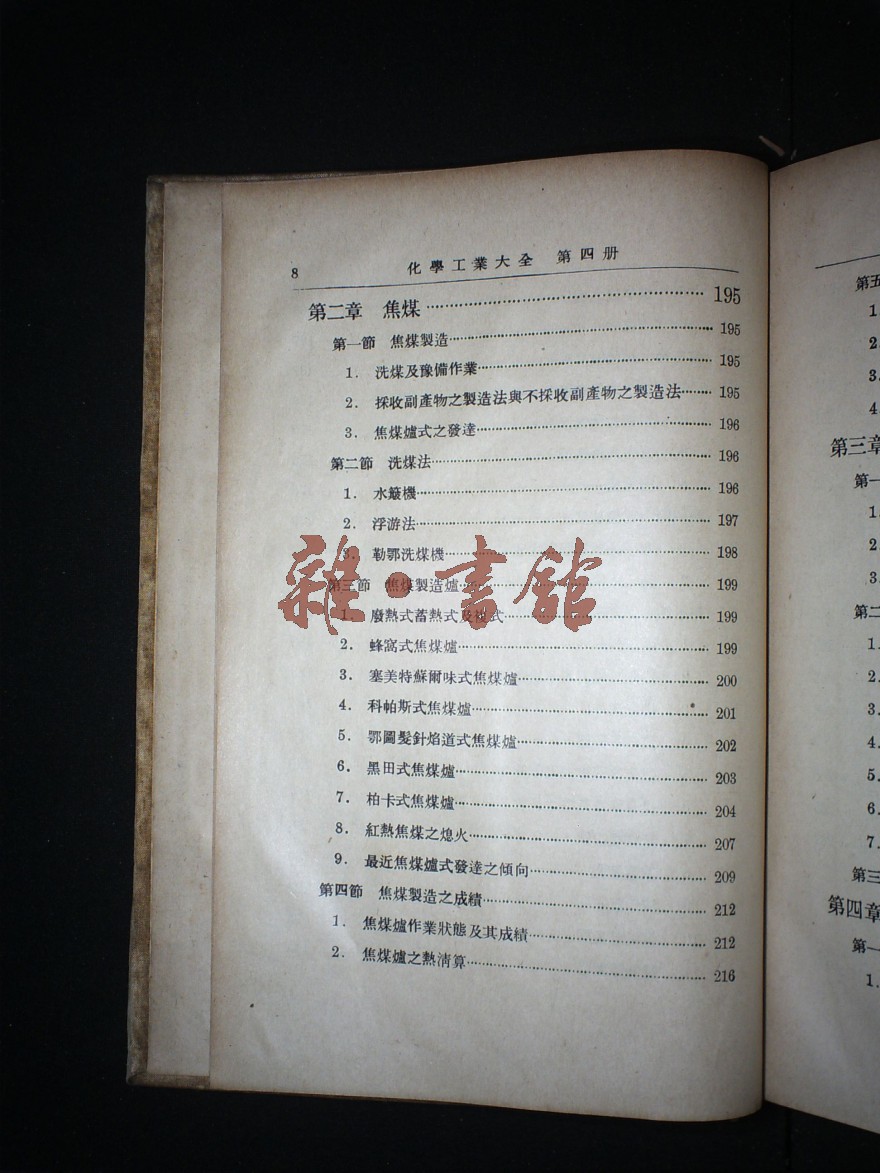 8 化學工業大全 第四册
第二章 焦煤 195
第一節 焦煤製造 195
1. 洗煤及豫備作業 195
2. 採收副產物之製造法與不採收副產物之製造法 195
3. 焦煤爐式之發達 196
第二節 洗煤法 196
1. 水簸機 196
2. 浮游法 197
3. 勒鄂洗煤機 198
第三節 焦煤製造爐 199
1. 廢熱式蓄熱式及複式 199
2. 蜂窩式焦煤爐 199
3. 塞美特蘇爾味式焦煤爐 200
4. 科帕斯式焦煤爐 201
5. 鄂圖髮針焰道式焦煤爐 202
6. 黑田式焦煤爐 203
7. 柏卡式焦煤爐 204
8. 紅熱焦煤之熄火 207
9. 最近焦煤爐式發達之傾向 209
第四節 焦煤製造之成績 212
1. 焦煤爐作業狀態及其成績 212
2. 焦煤爐之熱清算 216
雜·書館
第五
1
2.
3.
4
第三章
第一
1.
2.
3.
第二
1.
2.
3.
4.
5.
6.
7.
第三
第四章
第一
1.